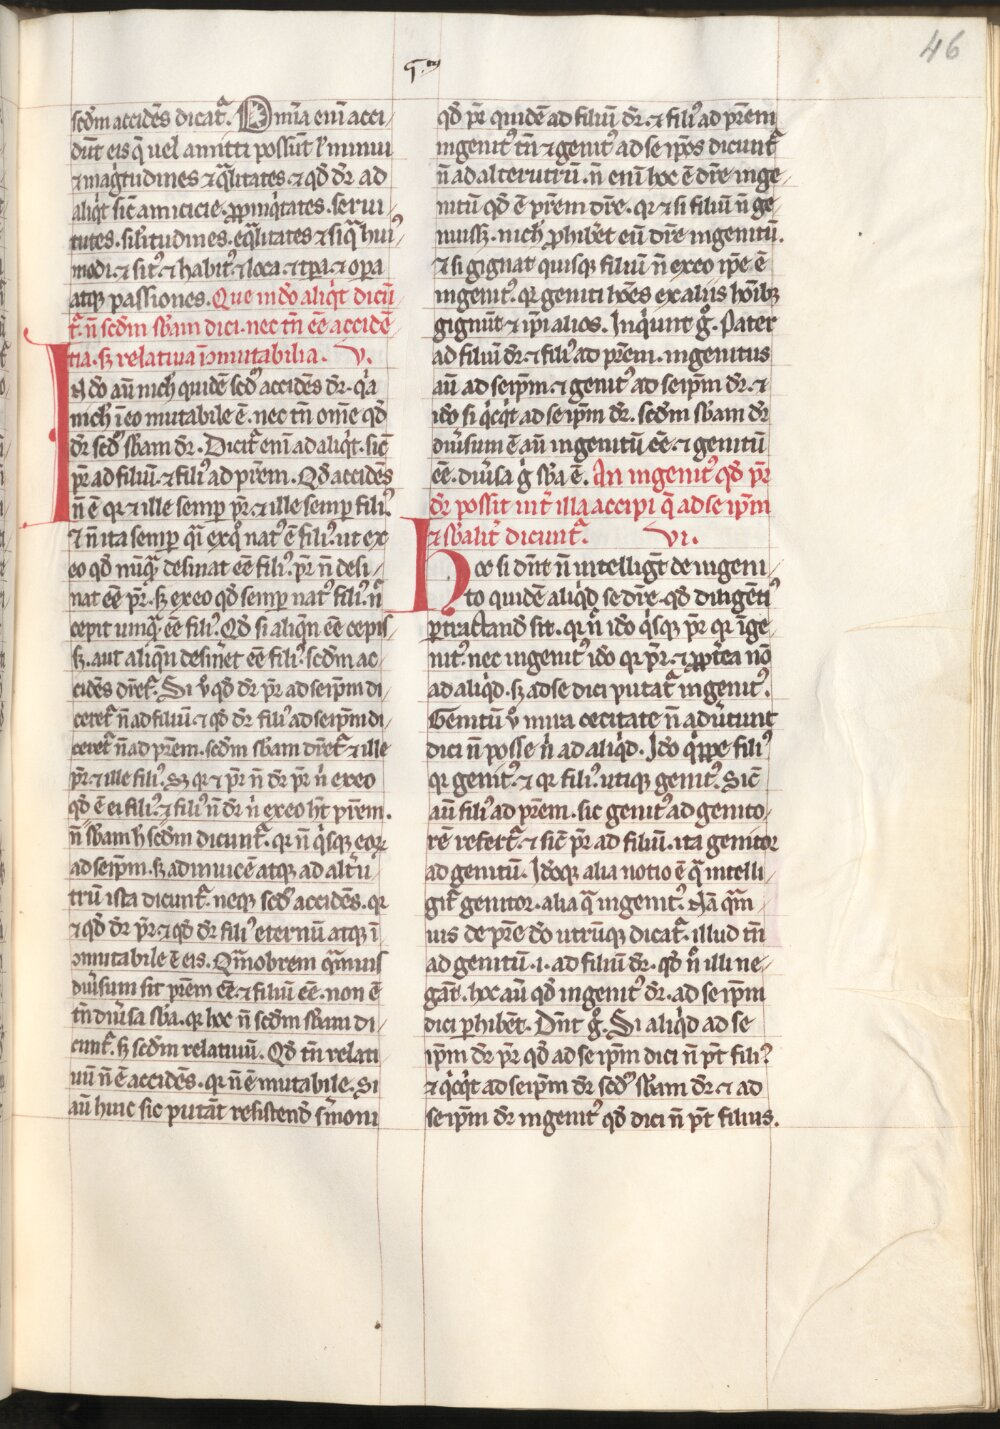 46
q.to
scd̄m accidēs dicat̄. Omīa enī acci/
dūt eis q̄ uel amitti possūt ł minui
⁊ magͥtudines ⁊ qͣlitates. ⁊ qd̄ dr̄ ad
aliqͥt sic̄ amicicie. ꝓpinqͥtates. serui/
tutes. silitudines. eqͣlitates ⁊ siqͣ huiꝰ
modi. ⁊ sitꝰ. ⁊ habitꝰ. ⁊ loca. ⁊ tꝑa. ⁊ oꝑa
atqꝫ passiones. Que in do aliqͥt dicū
t̄. n̄ scd̄m sb̄am dici. nec tn̄ ēē accidē/
tia. sꝫ relatiua īōmutabilia. V.
In do aū nich̄ quidē scd̄ꝰ accidēs dr̄. qͥa
nich̄ ī eo mutabile ē. nec tn̄ om̄e qd̄
dr̄ scd̄ꝰ sb̄am dr̄. Dicit̄ enī ad aliqͥt. sic̄
pr̄ ad filiū. ⁊ filiꝰ ad pr̄em. Qd̄ accidēs
n̄ ē qr ⁊ ille semꝑ pr̄. ⁊ ille semꝑ filiꝰ.
⁊ n̄ ita semꝑ qͣi ex qͦ natꝰ ē filiꝰ. ut ex
eo qd̄ nūqͣ desinat ēē filiꝰ. pr̄ n̄ desi/
nat ēē pr̄. sꝫ ex eo qd̄ semꝑ natꝰ filiꝰ. n̄
cepit umqͣ ēē filiꝰ. Qd̄ si aliqn̄ ēē cepis/
sꝫ. aut aliqn̄ desinēt ēē filiꝰ. scd̄m ac/
cidēs dr̄et̄. Si ͦu qd̄ dr̄ pr̄ ad seip̄m di/
ceret̄ n̄ ad filiū. ⁊ qd̄ dr̄ filiꝰ ad seip̄m di/
ceret̄ n̄ ad pr̄em. scd̄m sb̄am dr̄et̄ ⁊ ille
pr̄. ⁊ ille filiꝰ. Sꝫ qr ⁊ pr̄ n̄ dr̄ pr̄ nͥ ex eo
qd̄ ē ei filiꝰ. ⁊ filiꝰ n̄ dr̄ nͥ ex eo ht̄ pr̄em.
n̄ sb̄am h̄ scd̄m dicunt̄. qr n̄ qͥsqꝫ eoꝝ
ad seip̄m. sꝫ ad inuicē atqꝫ ad alt̄u/
trū ista dicunt̄. neqꝫ scd̄ꝰ accidēs. qr
⁊ qd̄ dr̄ pr̄. ⁊ qd̄ dr̄ filiꝰ eternū atqꝫ ī
ꝯmutabile ē eis. Qͣmobrem qͣmuis
diūsum sit pr̄em ēē. ⁊ filiū ēē. non ē
tn̄ diūsa sb̄a. qr hoc n̄ scd̄m sb̄am di/
cunt̄. sꝫ scd̄m relatiuū. Qd̄ tn̄ relati
uū n̄ ē accidēs. qr n̄ ē mutabile. Si
aū huic sic putāt resistend̄ s̄moni
qd̄ pr̄ quidē ad filiū dr̄. ⁊ filiꝰ ad pr̄em
ingenitꝰ tn̄ ⁊ genitꝰ ad se ip̄os dicunt̄
n̄ ad alterutrū. n̄ enī hoc ē dr̄e inge/
nitū qd̄ ē pr̄em dr̄e. qr ⁊ si filiū n̄ ge
nuissꝫ. nich̄ ꝓhibēt eū dr̄e ingenitū.
⁊ si gignat quisqꝫ filiū n̄ ex eo ip̄e ē
ingenitꝰ. qr geniti hoīes ex aliis hoībꝫ
gignūt ⁊ ip̄i alios. Inqͥunt gͦ. Pater
ad filiū dr̄. ⁊ filiꝰ ad pr̄em. ingenitus
aū ad seip̄m. ⁊ genitꝰ ad seip̄m dr̄. ⁊
iđo si qͥcqͥt ad se ip̄m dr̄. scd̄m sb̄am dr̄
diūsum ē aū ingenitū ēē. ⁊ genitū
ēē. diūsa gͥ sb̄a ē. An ingenitꝰ qd̄ pr̄
dr̄ possit int̄ illa accipi q̄ ad se ip̄m
⁊ sb̄alit̄ dicunt̄. VI.
Hoc si dn̄t n̄ intelligūt de ingeni/
to quidē aliqͥd se dr̄e. qd̄ diligētiꝰ
ꝑtractand̄ sit. qr n̄ iđo qͥsqꝫ pr̄ qr īge/
nitꝰ. nec ingenitꝰ iđo qr pr̄. ⁊ ꝓpt̄ea nō
ad aliqͥd. sꝫ ad se dici putat̄ ingenitꝰ.
Genitū ͦu mira cecitate n̄ aduītunt
dici n̄ posse nͥ ad aliqͥd. Iđo qͥppe filiꝰ
qr genitꝰ. ⁊ qr filiꝰ. utiqꝫ genitꝰ. Sic̄
aū filiꝰ ad pr̄em. sic genitꝰ ad genito/
rē refert̄. ⁊ sic̄ pr̄ ad filiū. ita genitor
ad genitū. Iđoqꝫ alia notio ē qͣ intelli/
git̄ genitor. alia qͣ ingenitꝰ. Nā qͣm/
uis de pr̄e do utrūqꝫ dicat̄. illud tn̄
ad genitū .i. ad filiū dr̄. qd̄ n̄ illi ne/
gāt. hoc aū qd̄ ingenitꝰ dr̄. ad se ip̄m
dici ꝑhibēt. Dn̄t gͦ. Si aliqͥd ad se
ip̄m dr̄ pr̄ qd̄ ad se ip̄m dici n̄ pt̄ filiꝰ
⁊ qͥcqͥt ad seip̄m dr̄ scd̄ꝰ sb̄am dr̄. ⁊ ad
seip̄m dr̄ ingenitꝰ qd̄ dici n̄ pt̄ filius.